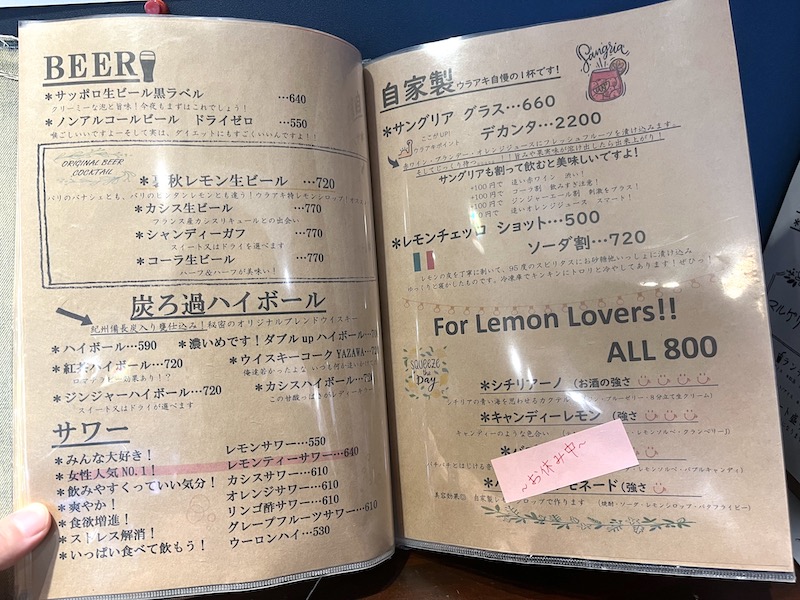 BEER
＊サッポロ生ビール黒ラベル …640
クリーミーな泡と旨味！今夜もまずはこれでしょう！
＊ノンアルコールビール ドライゼロ …550
喉ごしいいですよーそして実は、ダイエットにもすごくいいんですよ！！
ORIGINAL BEER COCKTAIL
秋レモン生ビール …720
＊カシス生ビール …770
フランス産カシスリキュールとの出会い
＊シャンディーガフ …770
スイート又はドライを選べます
＊コーラ生ビール …770
ハーフ＆ハーフが美味い！
炭ろ過ハイボール
紀州備長炭入り甕仕込み！秘密のオリジナルブレンドウイスキー
＊ハイボール…590 ＊濃いめです！ダブルupハイボール
＊紅茶ハイボール…720 ＊ウイスキーコーク YAZAWA…720
＊ジンジャーハイボール…720 ＊カシスハイボール…720
スイート又はドライが選べます
サワー
＊みんな大好き！ レモンサワー…550
＊女性人気NO.1！ レモンティーサワー…640
＊飲みやすくっていい気分！ カシスサワー…610
＊爽やか！ オレンジサワー…610
＊食欲増進！ リンゴ酢サワー…610
＊ストレス解消！ グレープフルーツサワー…610
＊いっぱい食べて飲もう！ ウーロンハイ…530
自家製 ウラアキ自慢の1杯です！
Sangria
＊サングリア グラス…660
デカンタ…2200
ここがUP!
ウラアキポイント
赤ワイン・ブランデー・オレンジジュースにフレッシュフルーツを漬け込みます。
サングリアも割って飲むと美味しいですよ！
+100円で 追い赤ワイン 渋い！
+100円で コーラ割 飲みすぎ注意！
+100円で ジンジャーエール割 刺激をプラス！
追いオレンジジュース スマート！
＊レモンチェッロ ショット…500
ソーダ割…720
レモンの皮を丁寧に剥いて、95度のスピリタスにお砂糖他いっしょに漬け込み
ゆっくりと寝かしたものです。冷凍庫でキンキンにトロリと冷やしてあります！ぜひっ！
For Lemon Lovers!!
ALL 800
SQUEEZE the DAY
＊シチリアーノ （お酒の強さ
＊キャンディーレモン （強さ
キャンディーのような色合い
～お休み中～
ネード（強さ